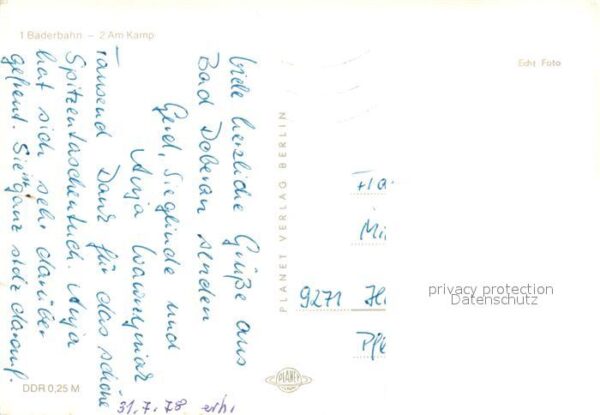 1 Bäderbahn — 2 Am Kamp
Echt Foto
Viele herzliche Grüße aus
Bad Doberan senden
Gerd, Sieglinde und
Anja
Tausend Dank für das schöne
Spitzentaschentuch. Anja
hat sich sehr darüber
gefreut. Sie ganz stolz darauf.
PLANET VERLAG BERLIN
PLANET
9271
privacy protection
Datenschutz
DDR 0,25 M
31.7.78 erh.